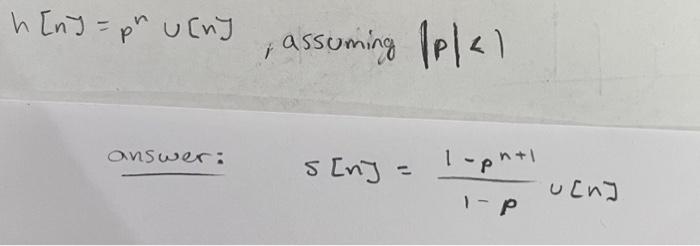 h[n] = pⁿ u[n] , assuming |p| < 1
answer: s[n] = (1 - pⁿ⁺¹)/(1 - p) u[n]